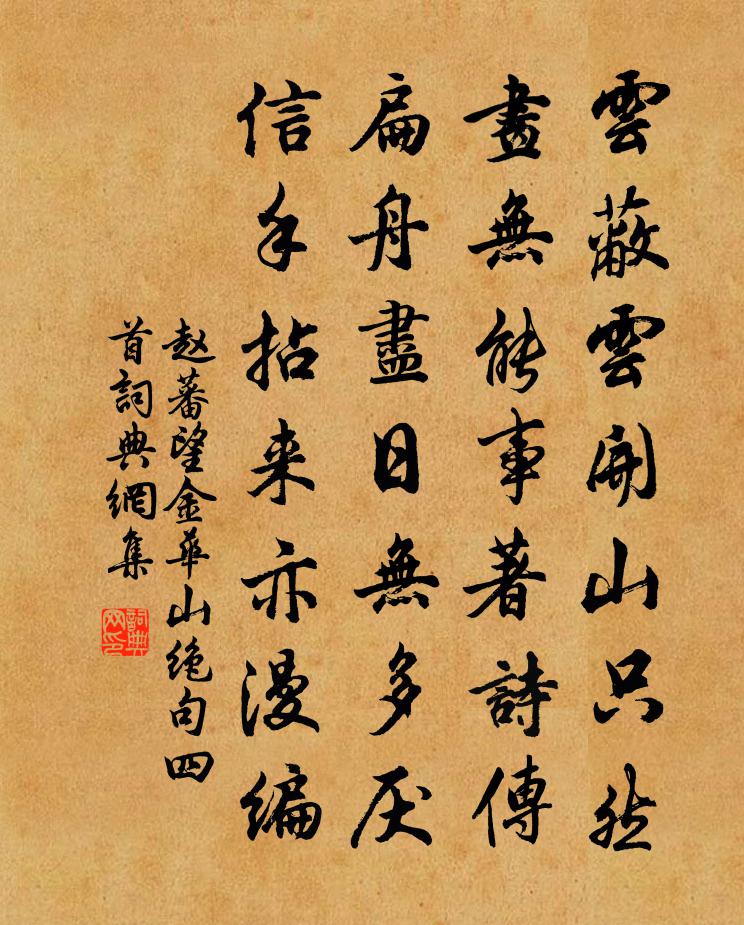 雲蔽雲開山只然
畫無能事著詩傳
扁舟盡日無多厌
信手拈来亦漫編
赵蕃望金華山絶句四
首詞典網集
詞典网印